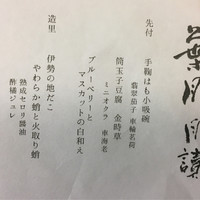 葉月
先付
手鞠はも小吸碗
翡翠茄子 車輪茗荷
筒玉子豆腐 金時草
ミニオクラ 車海老
ブルーベリーと
マスカットの白和え
造里
伊勢の地だこ
やわらか蛸と火取り蛸
熟成セロリ醤油
酢橘ジュレ